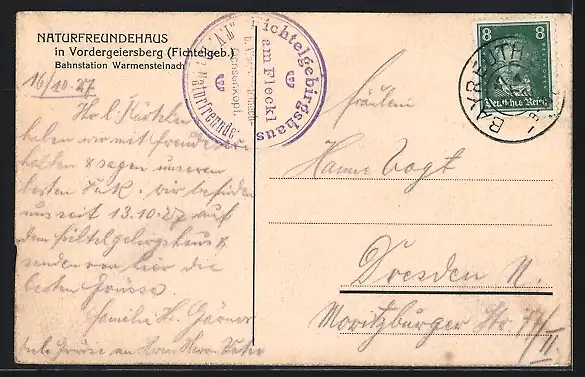 NATURFREUNDEHAUS
in Vordergeiersberg (Fichtelgeb.)
Bahnstation Warmensteinach
Fichtelgebirgshaus
am Fleckl
Ochsenkopf.
Naturfreunde
8 8
Deutsches Reich
BAYREUTH
16/10.27
Ihr l. Kärtchen
haben wir mit Freude er-
halten & sagen unseren
besten Dank. Wir befinden
uns seit 13.10.27 auf
dem Fichtelgebirgshaus &
senden von hier die
besten Grüsse.
Familie H.
Viele Grüsse an Herrn
Fräulein
Hanne Vogt
Dresden N.
Moritzburger Str.